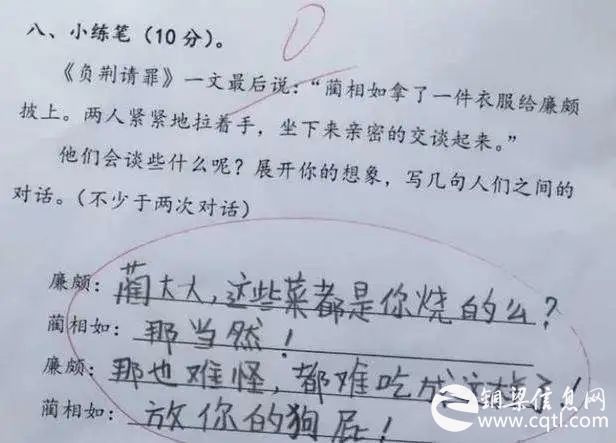 八、小练笔（10分）。
0
《负荆请罪》一文最后说：“蔺相如拿了一件衣服给廉颇
披上。两人紧紧地拉着手，坐下来亲密的交谈起来。”
他们会谈些什么呢？展开你的想象，写几句人们之间的
对话。（不少于两次对话）
廉颇：蔺大大，这些菜都是你烧的么？
蔺相如：那当然！
廉颇：那也难怪，都难吃成这样了！
蔺相如：放你的狗屁！
铜梁信息网
www.cqtl.com